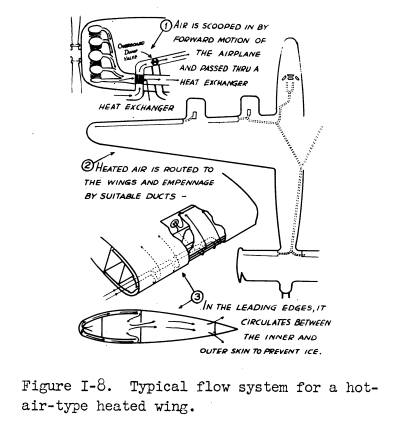 ① AIR IS SCOOPED IN BY
FORWARD MOTION OF
THE AIRPLANE
AND PASSED THRU A
HEAT EXCHANGER
OVERBOARD
DUMP
VALVE
HEAT EXCHANGER
② HEATED AIR IS ROUTED TO
THE WINGS AND EMPENNAGE
BY SUITABLE DUCTS -
③ IN THE LEADING EDGES, IT
CIRCULATES BETWEEN
THE INNER AND
OUTER SKIN TO PREVENT ICE.
Figure I-8. Typical flow system for a hot-
air-type heated wing.